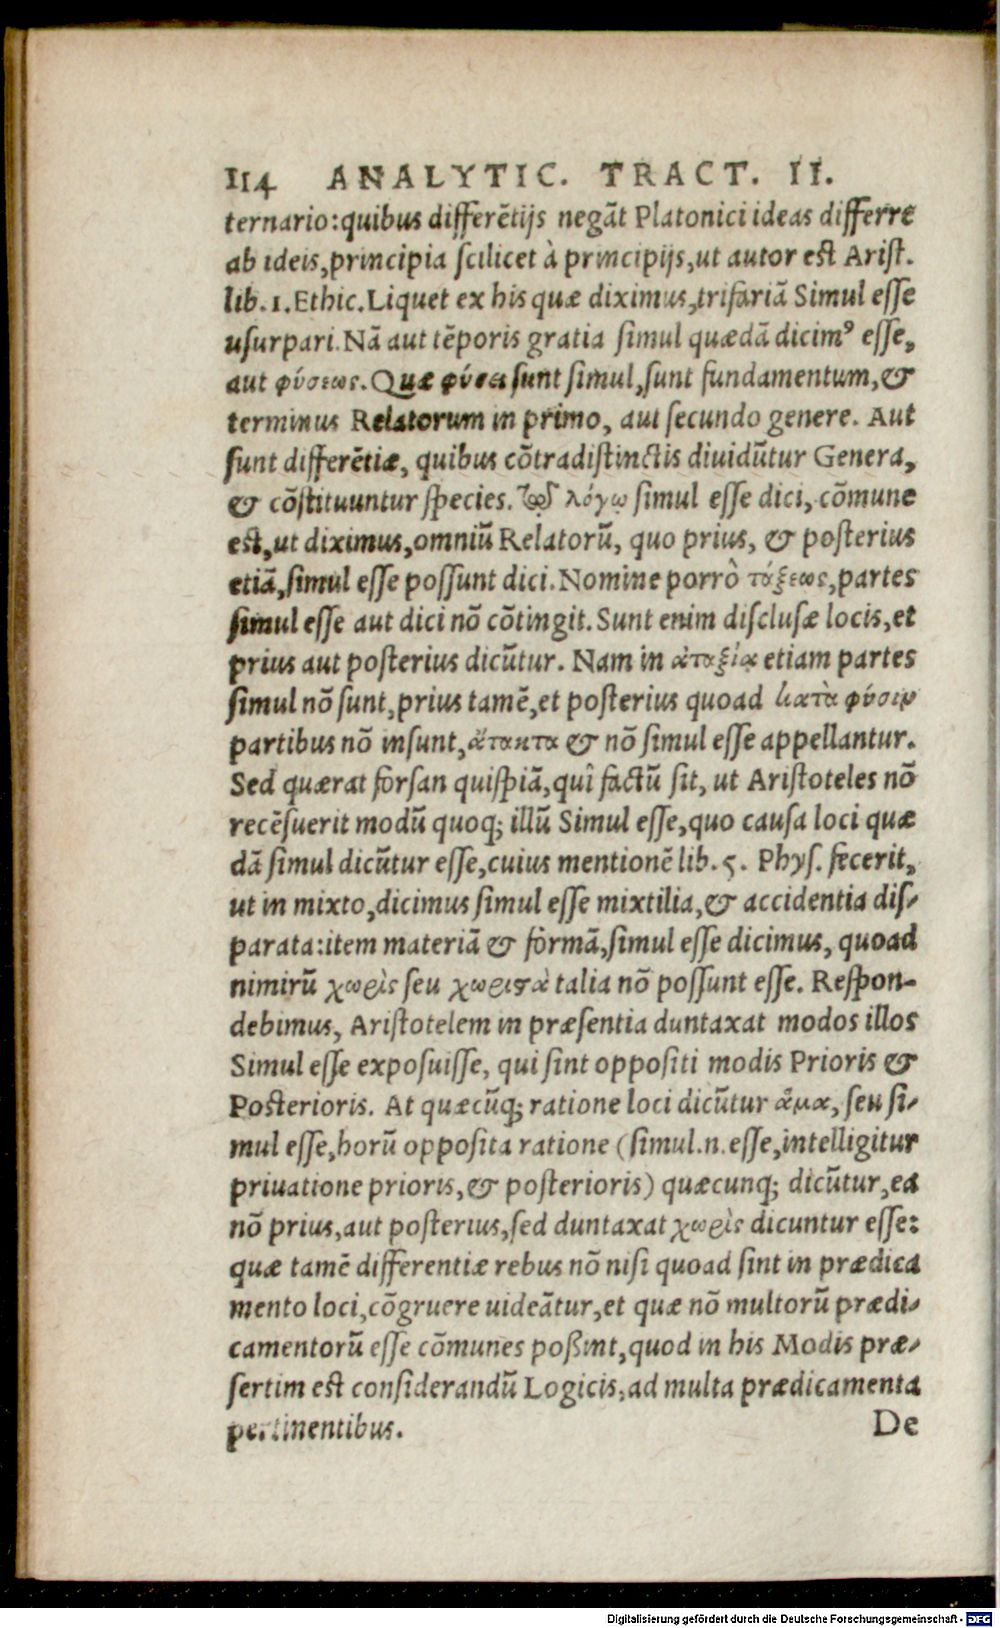 114 ANALYTIC. TRACT. II.
ternario: quibus differẽtijs negãt Platonici ideas differre
ab ideis, principia scilicet à principijs, ut autor est Arist.
lib. 1. Ethic. Liquet ex his quæ diximus, trifariã Simul esse
usurpari. Nã aut tẽporis gratia simul quædã dicimꝰ esse,
aut φύσεως. Quæ φύσει sunt simul, sunt fundamentum, &
terminus Relatorum in primo, aut secundo genere. Aut
sunt differẽtiæ, quibus cõtradistinctis diuidũtur Genera,
& cõstituuntur species. λόγῳ simul esse dici, cõmune
est, ut diximus, omniũ Relatorũ, quo prius, & posterius
etiã, simul esse possunt dici. Nomine porrò τάξεως, partes
simul esse aut dici nõ cõtingit. Sunt enim disclusæ locis, et
prius aut posterius dicũtur. Nam in ἀταξίᾳ etiam partes
simul nõ sunt, prius tamẽ, et posterius quoad κατὰ φύσιν
partibus nõ insunt, ἄτακτα & nõ simul esse appellantur.
Sed quærat forsan quispiã, quî factũ sit, ut Aristoteles nõ
recẽsuerit modũ quoq; illũ Simul esse, quo causa loci quæ
dã simul dicũtur esse, cuius mentionẽ lib. 5. Phys. fecerit,
ut in mixto, dicimus simul esse mixtilia, & accidentia dis-
parata: item materiã & formã, simul esse dicimus, quoad
nimirũ χωρὶς seu χωριστὰ talia nõ possunt esse. Respon-
debimus, Aristotelem in præsentia duntaxat modos illos
Simul esse exposuisse, qui sint oppositi modis Prioris &
Posterioris. At quæcũq; ratione loci dicũtur ἅμα, seu si-
mul esse, horũ opposita ratione (simul .n. esse, intelligitur
priuatione prioris, & posterioris) quæcunq; dicũtur, ea
nõ prius, aut posterius, sed duntaxat χωρὶς dicuntur esse:
quæ tamẽ differentiæ rebus nõ nisi quoad sint in prædica
mento loci, cõgruere uideãtur, et quæ nõ multorũ prædi-
camentorũ esse cõmunes poßint, quod in his Modis præ-
sertim est considerandũ Logicis, ad multa prædicamenta
pertinentibus. De
Digitalisierung gefördert durch die Deutsche Forschungsgemeinschaft - DFG